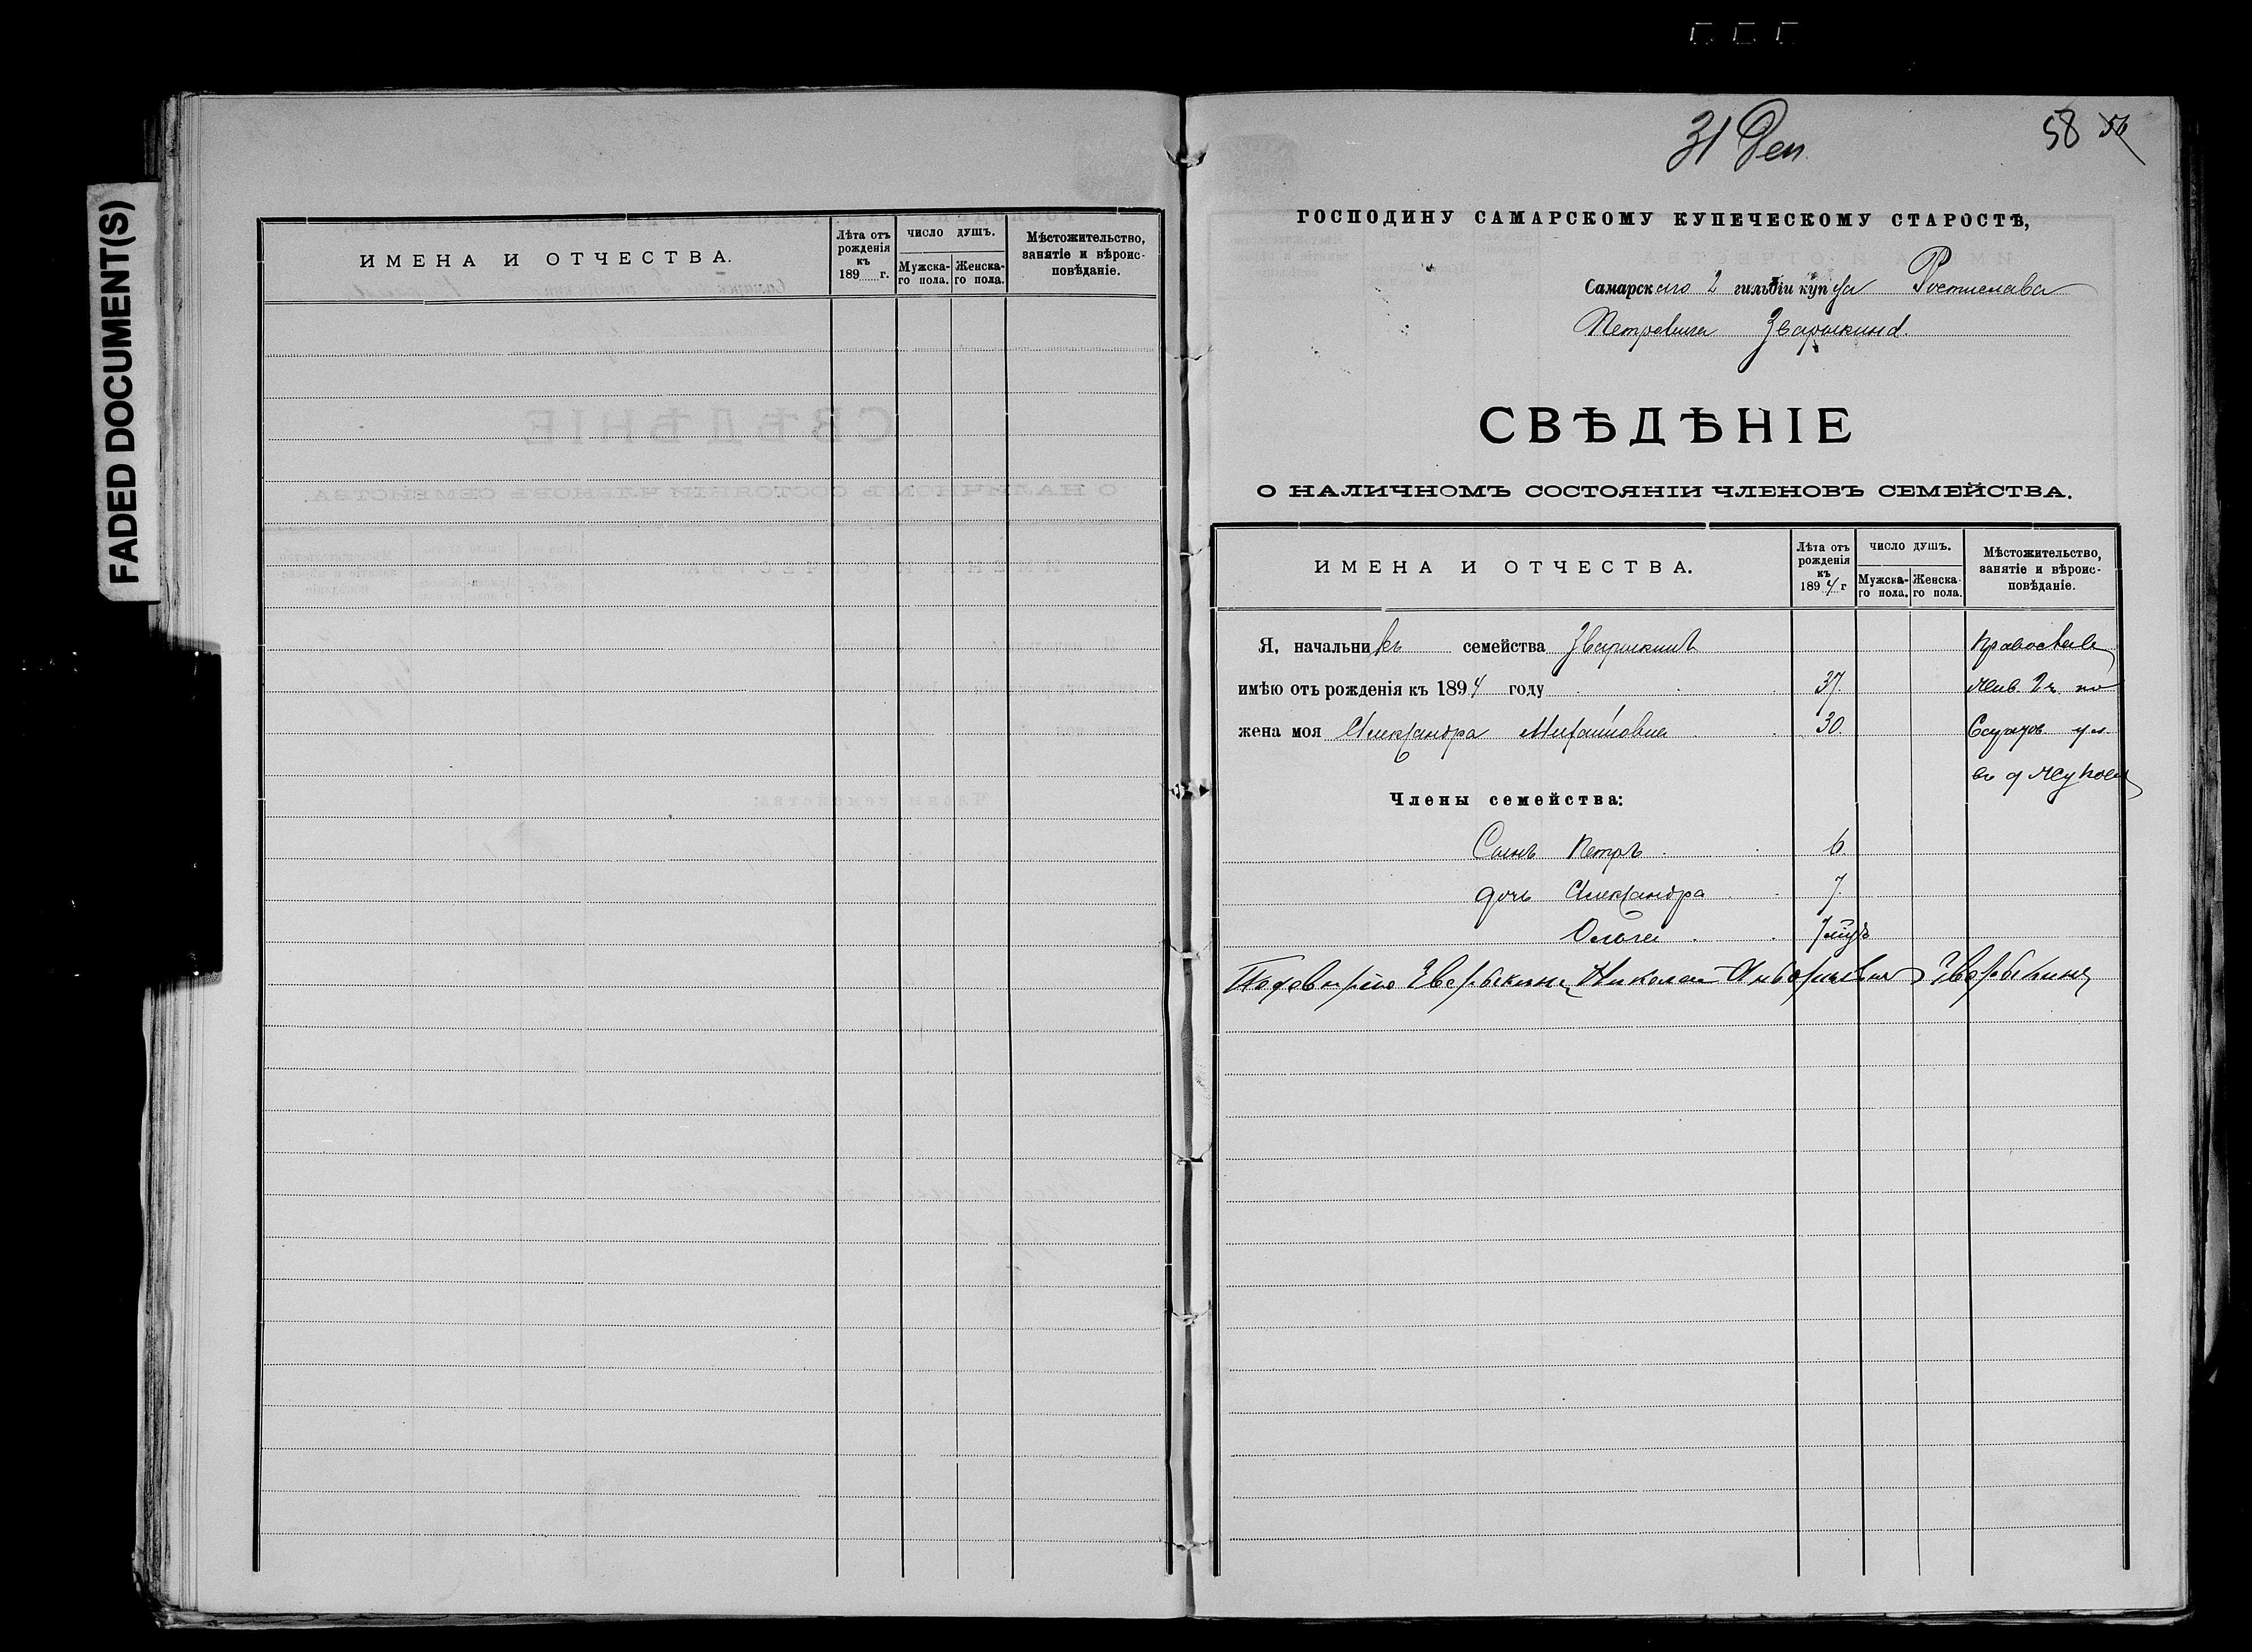 FADED DOCUMENT(S)
ИМЕНА И ОТЧЕСТВА.
Лѣта отъ рожденія къ 189 г.
ЧИСЛО ДУШЪ.
Мужска-го пола.
Женска-го пола.
Мѣстожительство, занятіе и вѣроис-повѣданіе.
31 Дек
58 56
ГОСПОДИНУ САМАРСКОМУ КУПЕЧЕСКОМУ СТАРОСТѢ,
Самарскаго 2 гильдіи купца Ростислава
Петровича Зварыкина.
СВѢДѢНІЕ
О НАЛИЧНОМЪ СОСТОЯНІИ ЧЛЕНОВЪ СЕМЕЙСТВА.
ИМЕНА И ОТЧЕСТВА.
Лѣта отъ рожденія къ 1894 г
ЧИСЛО ДУШЪ.
Мужска-го пола.
Женска-го пола.
Мѣстожительство, занятіе и вѣроис-повѣданіе.
Я, начальникъ семейства Зварыкинъ Православ
имѣю отъ рожденія къ 1894 году 37. жив. 2 ч. по
жена моя Александра Михайловна 30.
Члены семейства:
Сынъ Петръ 6.
дочь Александра 7.
Ольга
Николай Зварыкинъ